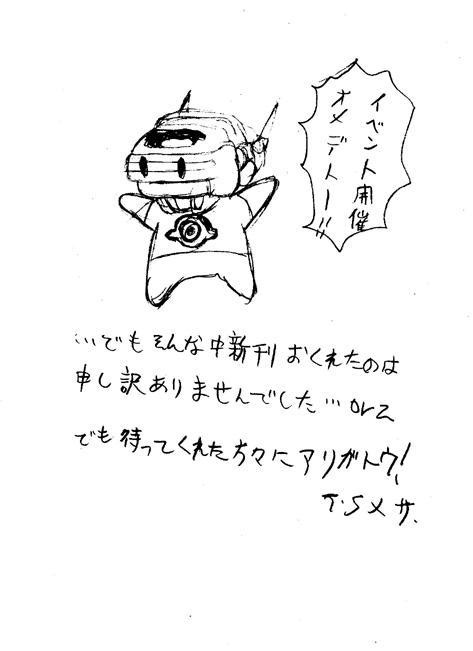 イベント開催
オメデトー!!
…でもそんな中新刊おくれたのは
申し訳ありませんでした…orz
でも待ってくれた方々にアリガトウ!
T・Sメサ.